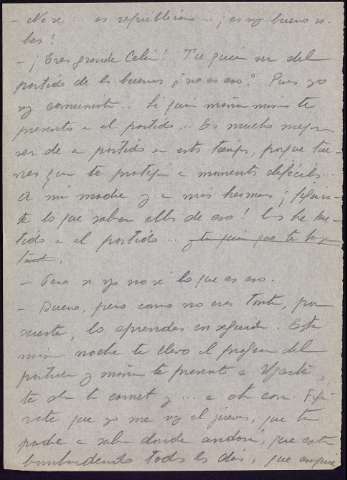 - No sé ... es republicano ... ¡es muy bueno so-
bas!
- ¡Eres grande Celia! Tu quieres ser del
partido de los buenos ¿no es eso? Pues yo
soy comunista .. Si quieres mañana mismo te
presento en el partido .. Es mucho mejor
ser de un partido en estos tiempos, porque tie-
nes quien te proteja en momentos difíciles ..
A mi madre y a mis hermanas ¡figúra-
te lo que saben ellas de eso! las he me-
tido en el partido ...
- Pero si yo no sé lo que es eso.
- Bueno, pero como no eres tonta, por
suerte, lo aprendes en seguida. Esta
misma noche te llevo el programa del
partido y mañana te presento a
te dan el carnet y ... a otra cosa. Fígú-
rate que yo me voy el jueves, que tu
padre a saber donde andará, que están
bombardeando todos los días, que